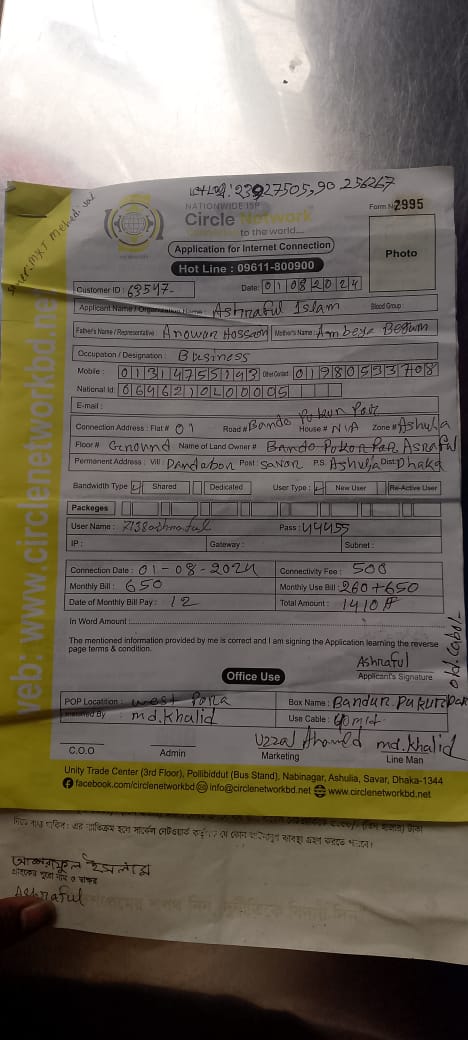 NATIONWIDE ISP
Circle Network
to the world....
Form N 2995
Application for Internet Connection
Hot Line : 09611-800900
Photo
Customer ID : 69547-
Date: 01082024
Applicant Name / Organization Name : Ashraful Islam Blood Group :
Father's Name / Representative : Anowar Hossain Mother's Name : Ambeya Begum
Occupation / Designation : Business
Mobile : Other Contact :
National Id:
E-mail :
Connection Address : Flat # 01 Road # Bando Pokon Par House # N/A Zone # Ashulia
Floor # Ground Name of Land Owner # Bando Pokon Par, Asraful
Permanent Address : Vill : Post Savar P.S. Ashulia Dist: Dhaka
Bandwidth Type Shared Dedicated User Type : New User Re-Active User
Packeges
User Name : 7138ashraful Pass : 44455
IP : Gateway : Subnet :
Connection Date : 01-08-2024 Connectivity Fee : 500
Monthly Bill : 650 Monthly Use Bill : 260+650
Date of Monthly Bill Pay : 12 Total Amount : 1410
In Word Amount :
The mentioned information provided by me is correct and I am signing the Application learning the reverse
page terms & condition.
Ashraful
Applicant's Signature
old. Cabel
Office Use
POP Locatition : west Para Box Name : Bandur. Pukurpar
By md. Khalid Use Cable : 40mit
Uzzal Ahmed md. Khalid
C.O.O Admin Marketing Line Man
Unity Trade Center (3rd Floor), Pollibiddut (Bus Stand), Nabinagar, Ashulia, Savar, Dhaka-1344
facebook.com/circlenetworkbd info@circlenetworkbd.net www.circlenetworkbd.net
veb: www.circlenetworkbd.ne
আশরাফুল ইসলাম
Ashraful